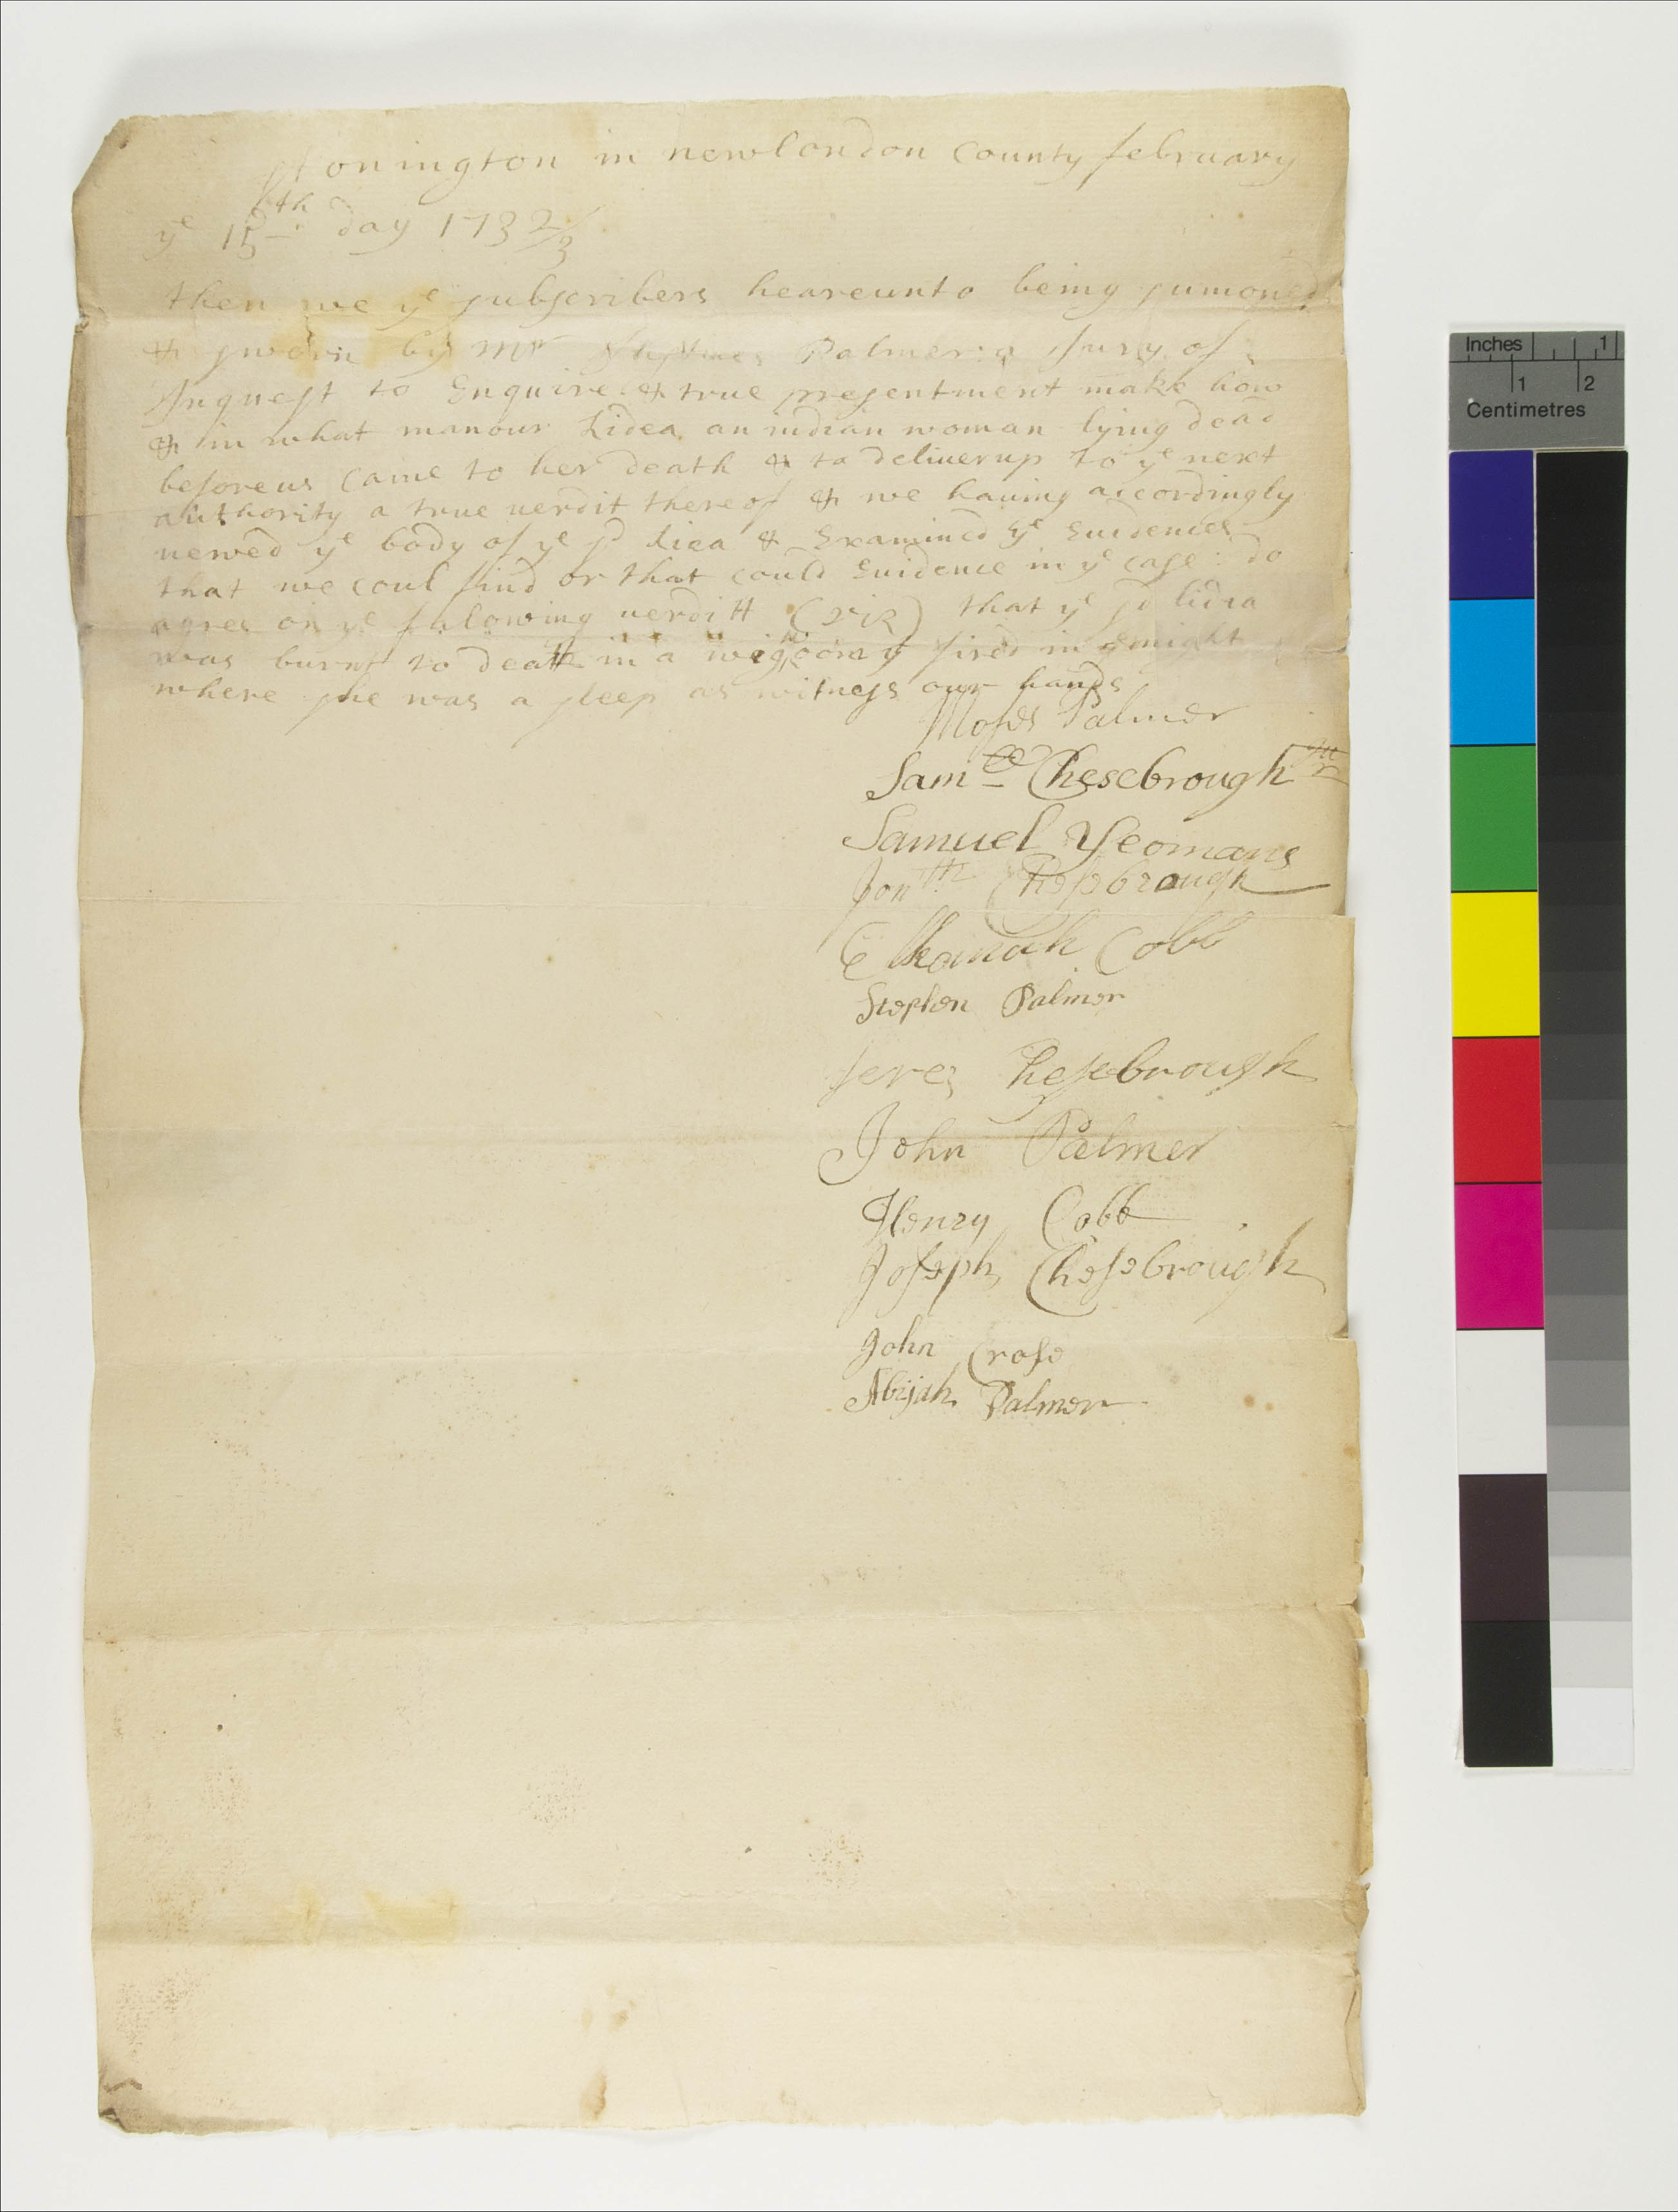 Stonington in newlondon County february
yͤ 15th day 1732/3
then we yͤ subscribers heareunto being sumoned
& sworn by Mr Palmer a Jury of
Inquest to Enquire & true presentment make how
& in what manour Lidea an indian woman lying dead
before us came to her death & to deliver up to yͤ next
authority a true verdit thereof & we hauing accordingly
uewed yͤ body of yͤ sd Liea & Examined yͤ Euidences
that we coul find or that could Euidence in yͤ case: do
agree on yͤ folowing verditt (viz) that yͤ sd lidia
was burnt to death in a fired in yͤ night
where she was a sleep as witness our hands
Moses Palmer
Samll Chesebrough Junr
Samuel Yeomans
Jonth Chesebrough
Elkanah Cobb
Stephen Palmer
Jerez Chesebrough
John Palmer
Henry Cobb
Joseph Chesebrough
John Crase
Abijah Palmer
Inches 1
1 2
Centimetres